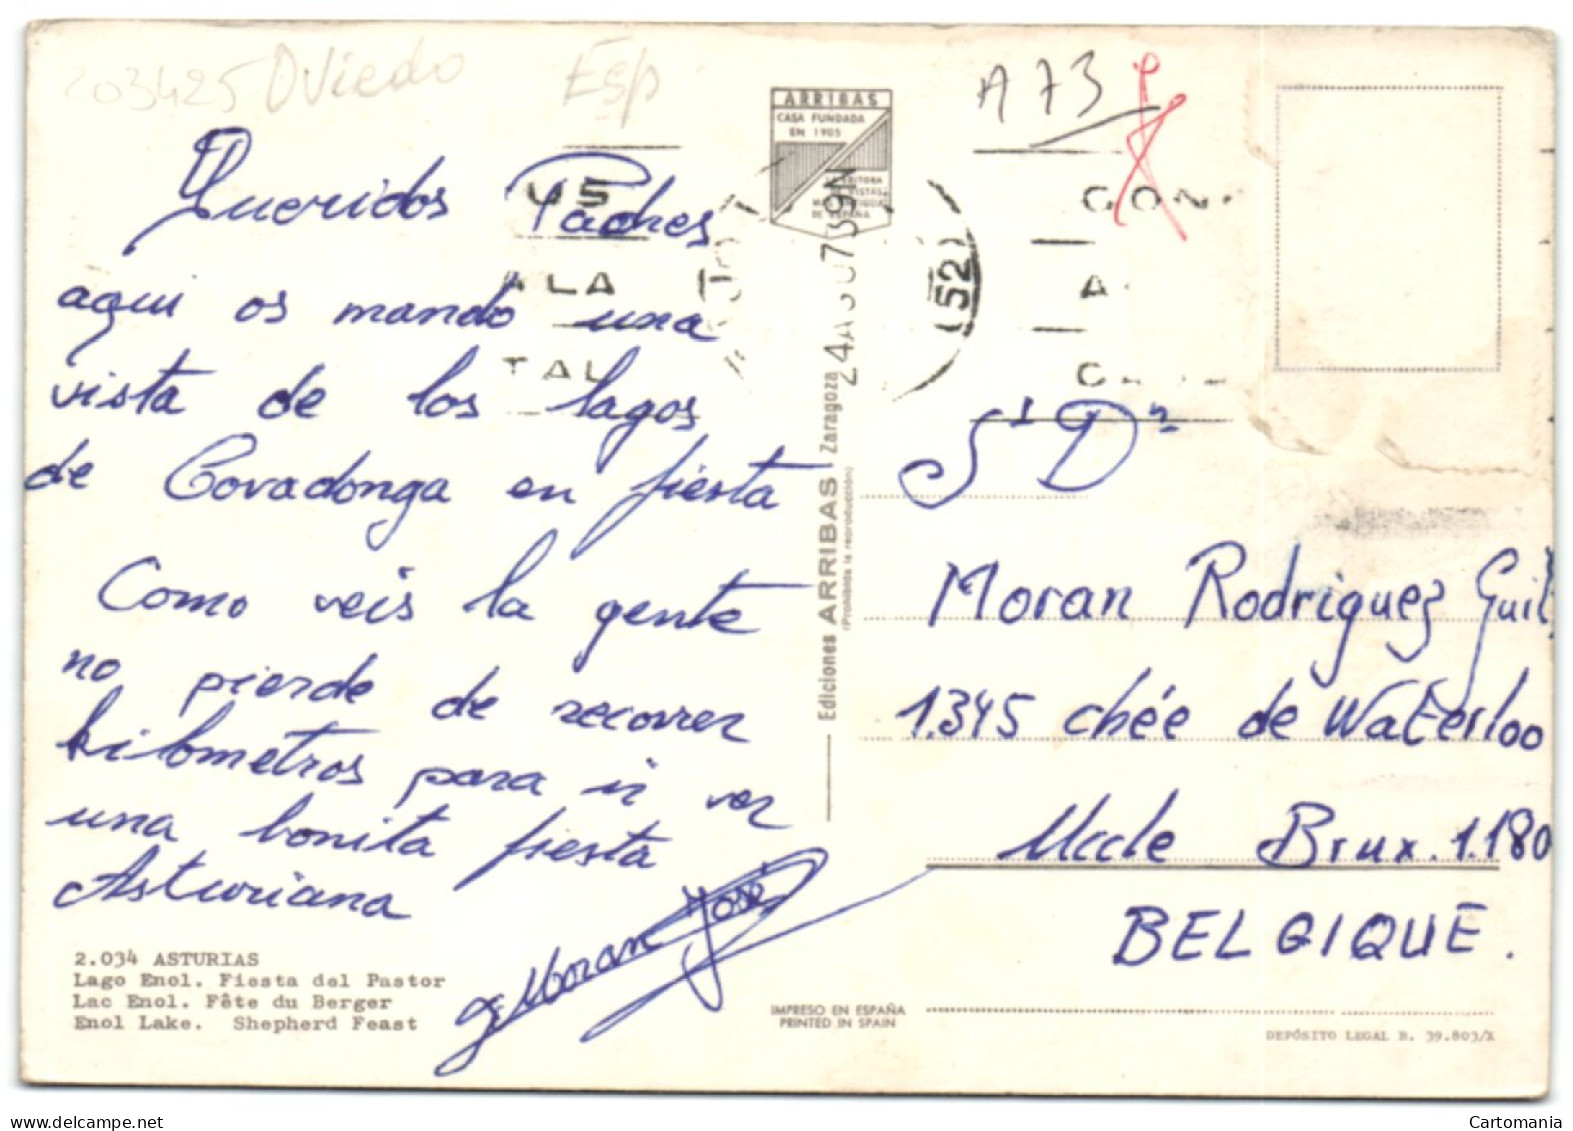 203425 Oviedo
Esp
A73
ARRIBAS
CASA FUNDADA
EN 1905
EDITORA
DE ESPAÑA
US
ALA
TAL
(52)
Queridos Padres
aqui os mando una
vista de los lagos
de Covadonga en fiesta
Como veis la gente
no pierde de recorrer
kilometros para ir ver
una bonita fiesta
Asturiana
G Moran José
2.034 ASTURIAS
Lago Enol. Fiesta del Pastor
Lac Enol. Fête du Berger
Enol Lake. Shepherd Feast
Ediciones ARRIBAS Zaragoza
(Prohibida la reproducción)
IMPRESO EN ESPAÑA
PRINTED IN SPAIN
Moran Rodriguez Guil
1.345 chée de Waterloo
Uccle Brux. 1.180
BELGIQUE.
DEPÓSITO LEGAL B. 39.803/X
Cartomania